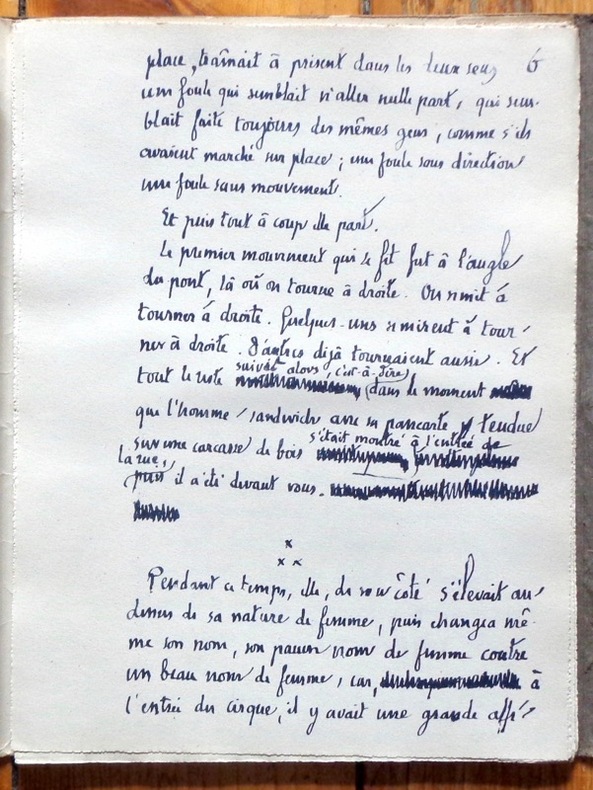 place, traînait à présent dans les deux sens 6
une foule qui semblait n'aller nulle part, qui sem-
blait faite toujours des mêmes gens, comme s'ils
avaient marché sur place ; une foule sans direction
une foule sans mouvement.
Et puis tout à coup elle part.
Le premier mouvement qui se fit fut à l'angle
du pont, là où on tourne à droite. On se mit à
tourner à droite. Quelques-uns se mirent à tour-
ner à droite. D'autres déjà tournaient aussi. Et
suivait alors, c'est-à-dire
tout le reste (dans le moment
que l'homme sandwich avec sa pancarte tendue
s'était montré à l'entrée de
sur une carcasse de bois
la rue,
puis il a été devant vous.
x
x x
Pendant ce temps, elle, de son côté s'élevait au-
dessus de sa nature de femme, puis changea mê-
me son nom, son pauvre nom de femme contre
un beau nom de femme, car, à
l'entrée du cirque, il y avait une grande affi-